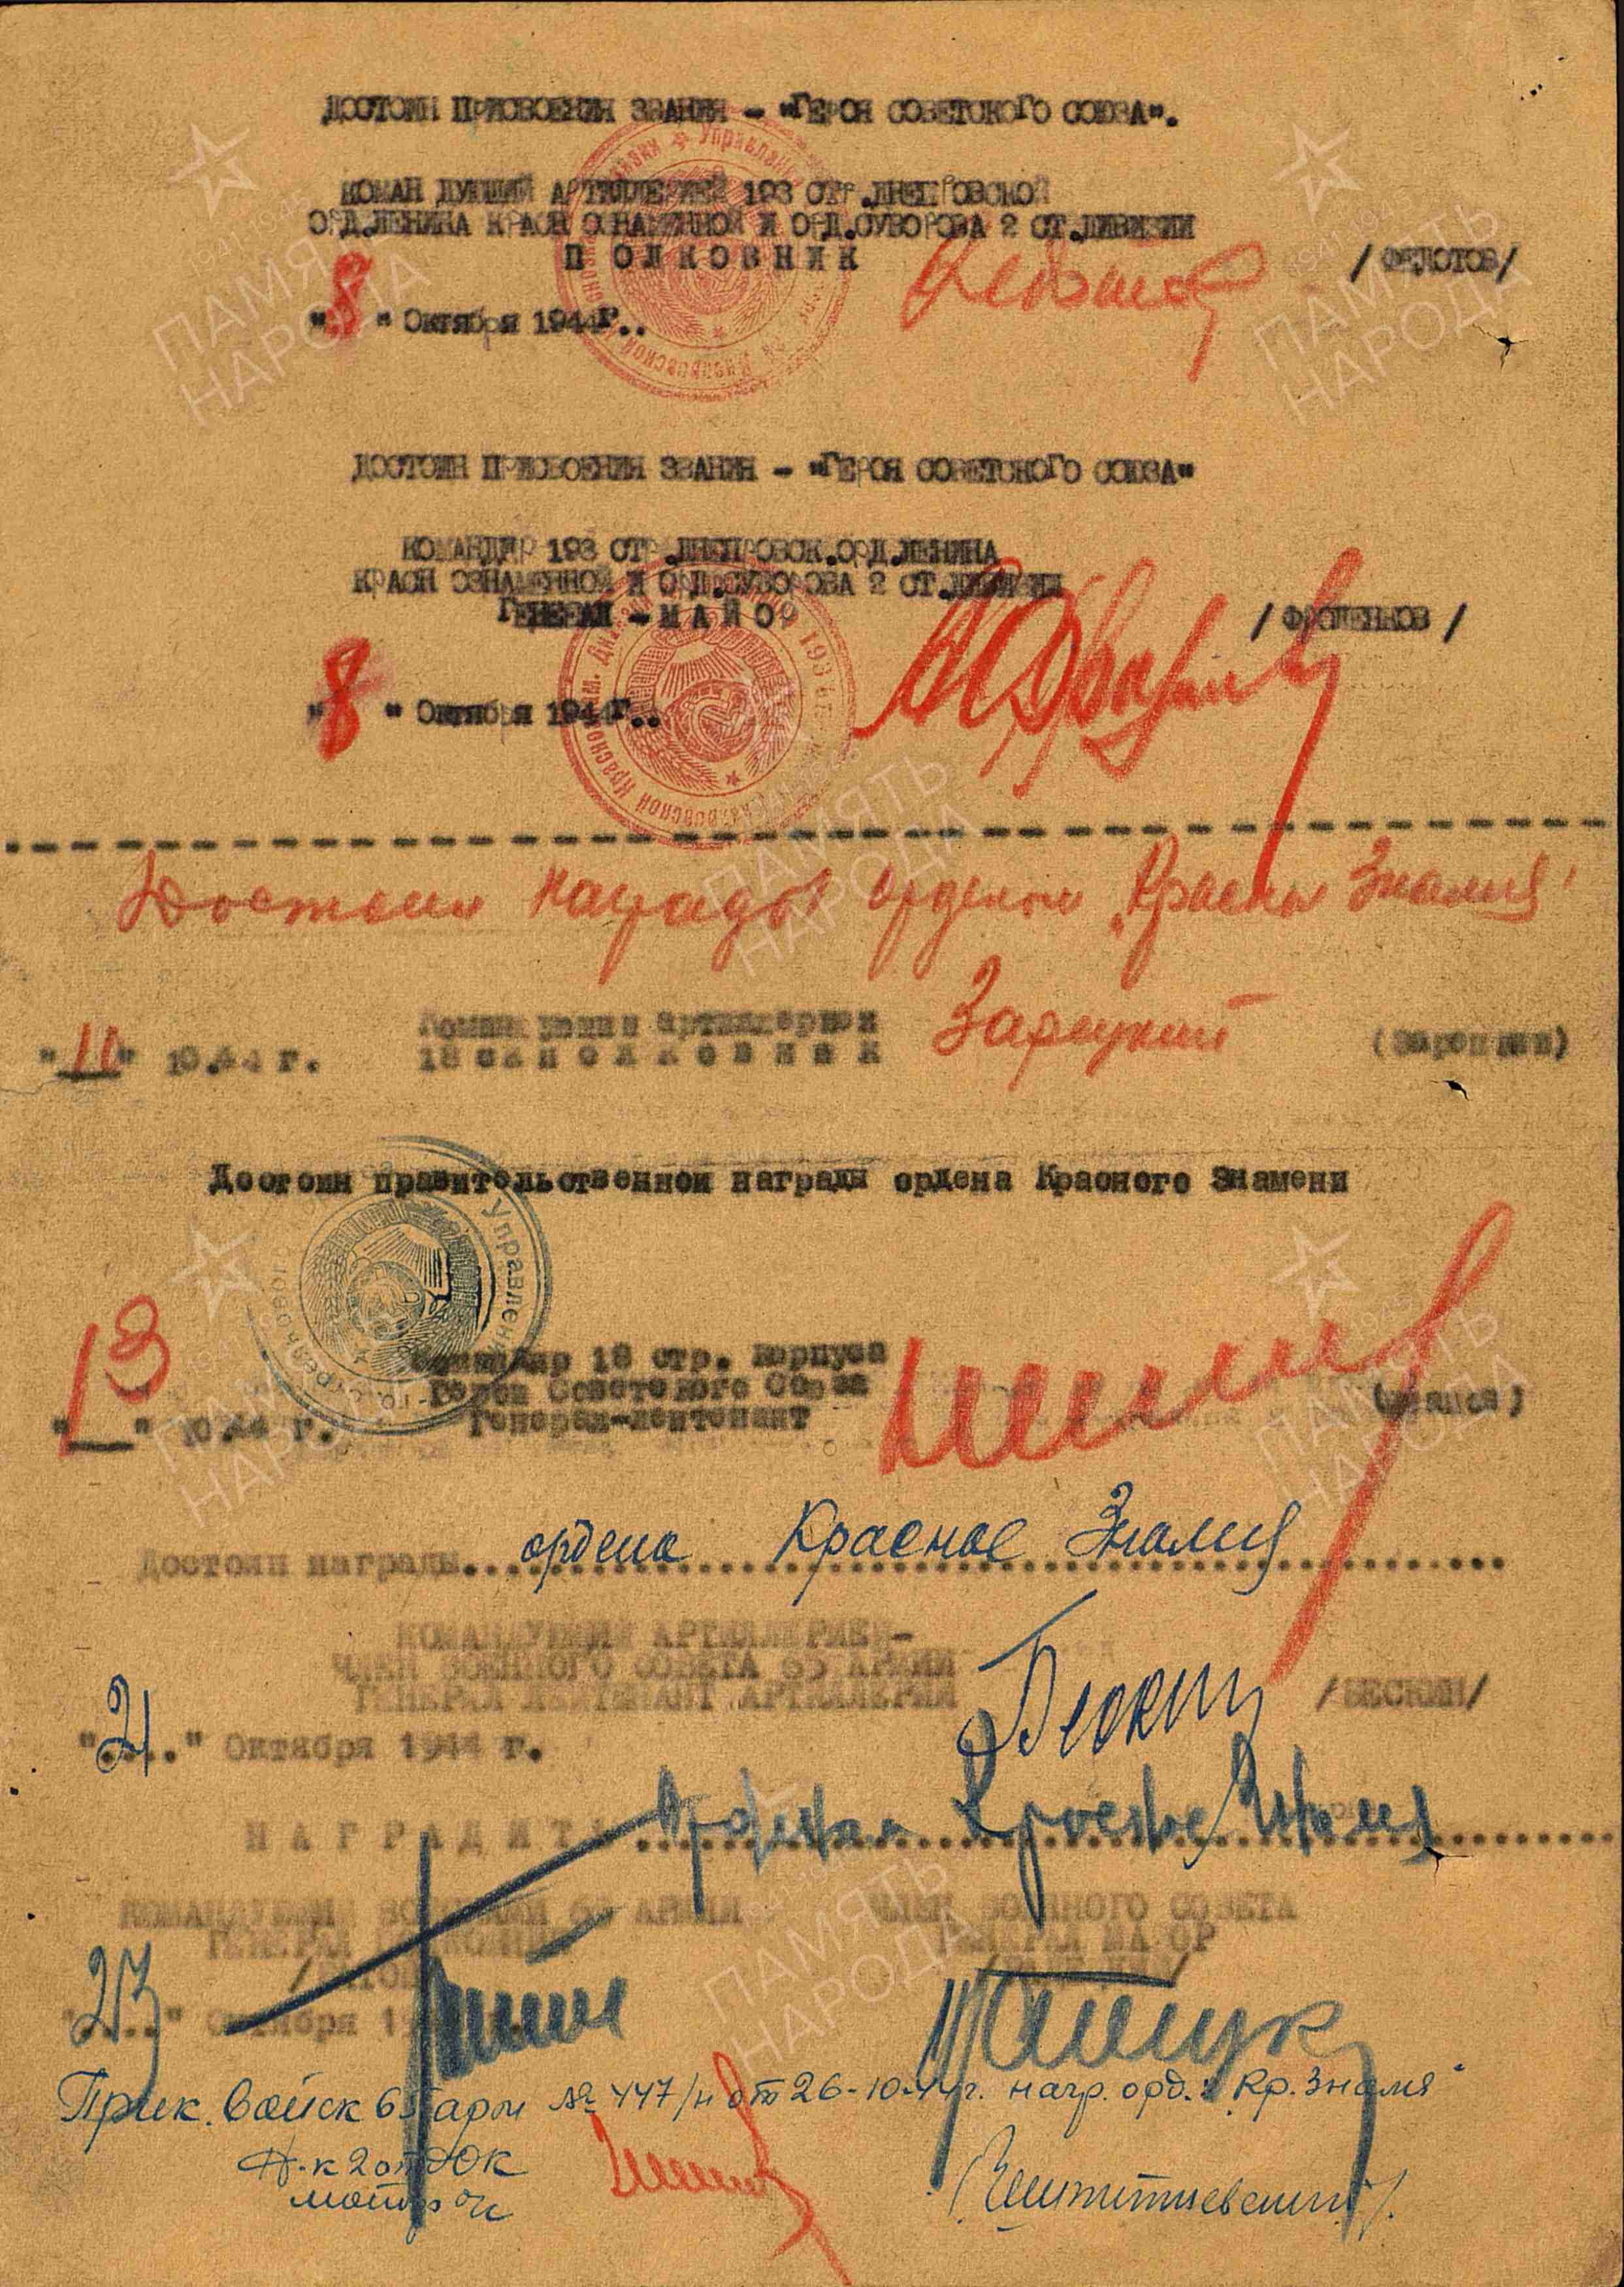 ДОСТОИН ПРИСВОЕНИЯ ЗВАНИЯ – "ГЕРОЯ СОВЕТСКОГО СОЮЗА".
КОМАН ДУЮЩИЙ АРТИЛЛЕРИЕЙ 193 СТР.ДНЕПРОВСКОЙ
ОРД.ЛЕНИНА КРАСН ОЗНАМЕННОЙ И ОРД.СУВОРОВА 2 СТ.ДИВИЗИИ
ПОЛКОВНИК /ФЕДОТОВ/
"8" Октября 1944г..
ДОСТОИН ПРИСВОЕНИЯ ЗВАНИЯ – "ГЕРОЯ СОВЕТСКОГО СОЮЗА"
КОМАНДИР 193 СТР.ДНЕПРОВСК.ОРД.ЛЕНИНА
КРАСН ОЗНАМЕННОЙ И ОРД.СУВОРОВА 2 СТ.ДИВИЗИИ
ГЕНЕРАЛ – МАЙОР /ФРОЛЕНКОВ/
"8" Октября 1944г..
Достоин награды орденом "Красное Знамя"
Командующий артиллерией
18 ск полковник Зарецкий (Зарецкий)
"10" 10.44 г.
Достоин правительственной награды ордена Красного Знамени
Командир 18 стр. корпуса
Героя Советского Союза
Генерал-лейтенант (Иванов)
"13" 10.44 г.
Достоин награды ордена Красное Знамя
КОМАНДУЮЩИЙ АРТИЛЛЕРИЕЙ–
ЧЛЕН ВОЕННОГО СОВЕТА 65 АРМИИ
ГЕНЕРАЛ ЛЕЙТЕНАНТ АРТИЛЛЕРИИ /БЕСКИН/
"21" Октября 1944 г.
НАГРАДИТЬ Орденом Красное Знамя
КОМАНДУЮЩИЙ ВОЙСКАМИ 65 АРМИИ ЧЛЕН ВОЕННОГО СОВЕТА
ГЕНЕРАЛ ПОЛКОВНИК ГЕНЕРАЛ МАЙОР
"23" Октября
Прик. Войск 65 арм № 447/н от 26-10-44г. нагр. орд. "Кр. Знамя"
Н-к 2 от ОК
майор
ПАМЯТЬ
НАРОДА